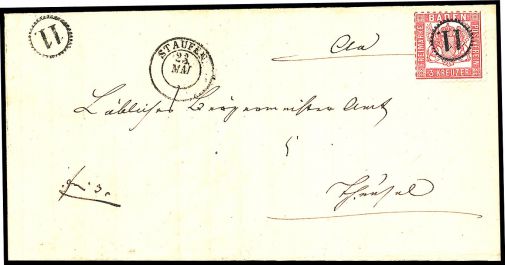 11
STAUFEN
23
MAI
BADEN
FREIMARKE
POSTVEREIN
3 KREUZER
11
An
Löbliches Bürgermeister Amt